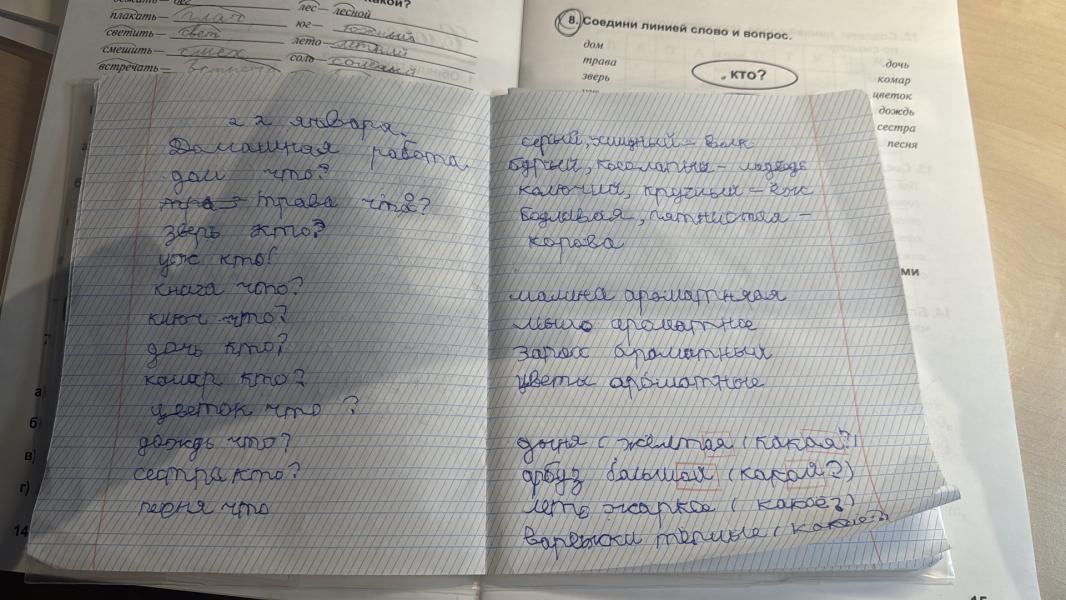 какой?
плакать — плач
светить — свет
смешить — смех
встречать —
лес — лесной
юг — южный
лето — летний
соль — соленый
8. Соедини линией слово и вопрос.
дом
трава
зверь
кто?
дочь
комар
цветок
дождь
сестра
песня
22 января.
Домашная работа
дом что?
тра трава что?
зверь кто?
уж кто?
книга что?
ключ что?
дочь кто?
комар кто?
цветок что ?
дождь что?
сестра кто?
песня что
серый, хищный - волк
бурый, косолапый - медведь
колючий, кручёный - ёж
бодливая, пятнистая -
корова
малина ароматняая
мыло ароматное
запах ароматный
цветы ароматные
дыня ( жёлтая (какая?)
арбуз большой (какой?)
лето жаркое ( какое?)
варежки тёплые ( какие?)
а)
б)
в)
г)
14
ми
15